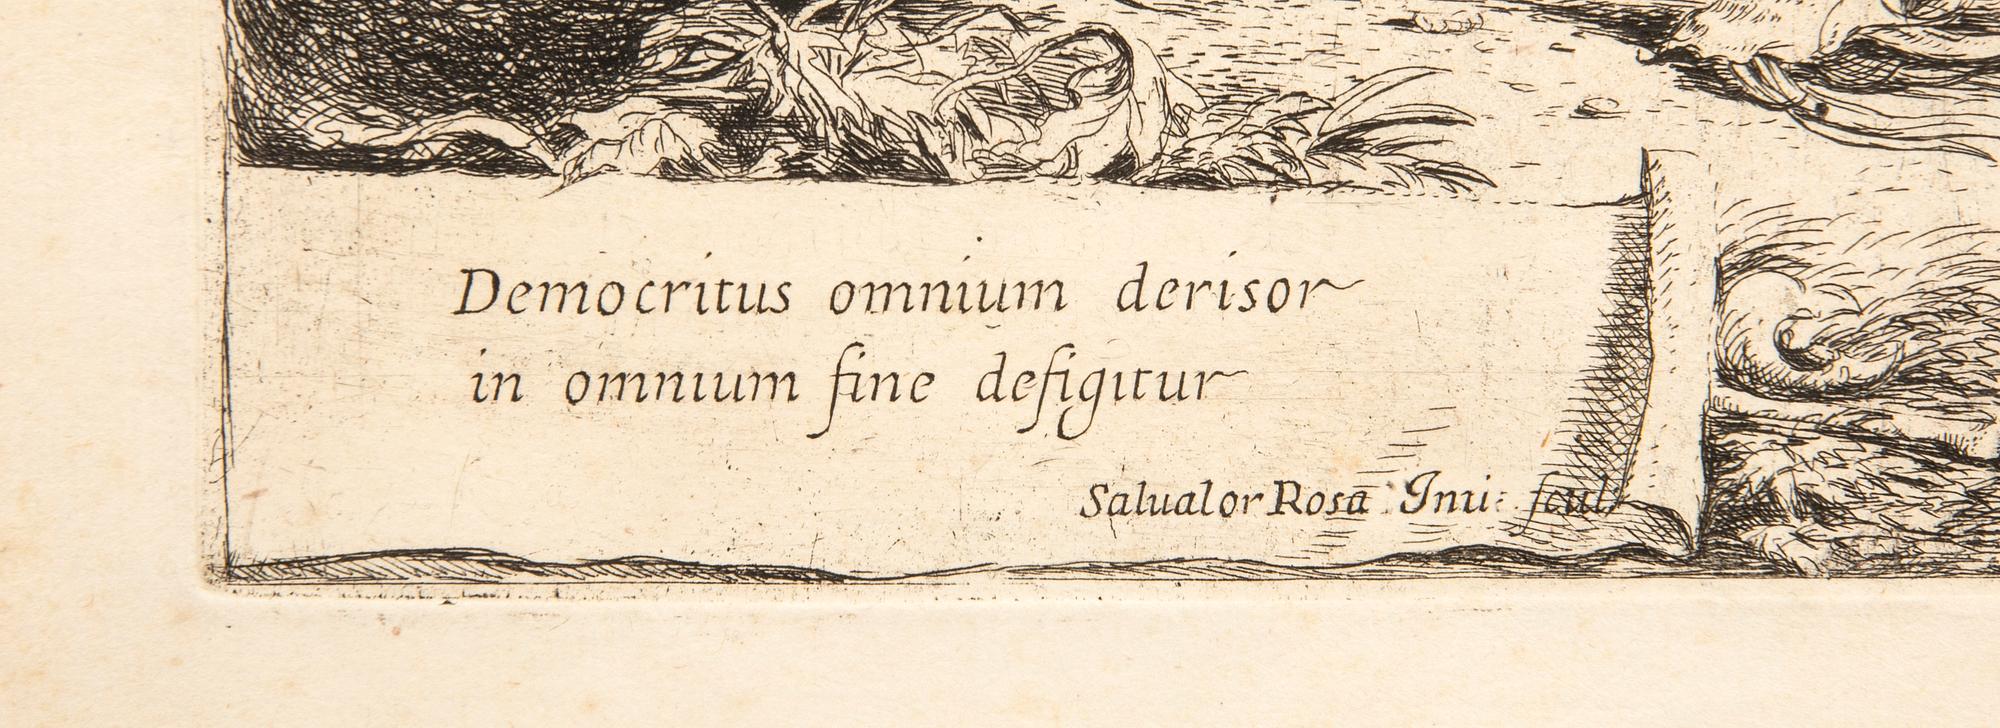 Democritus omnium derisor
in omnium fine defigitur
Saluator Rosa Inu: scul.